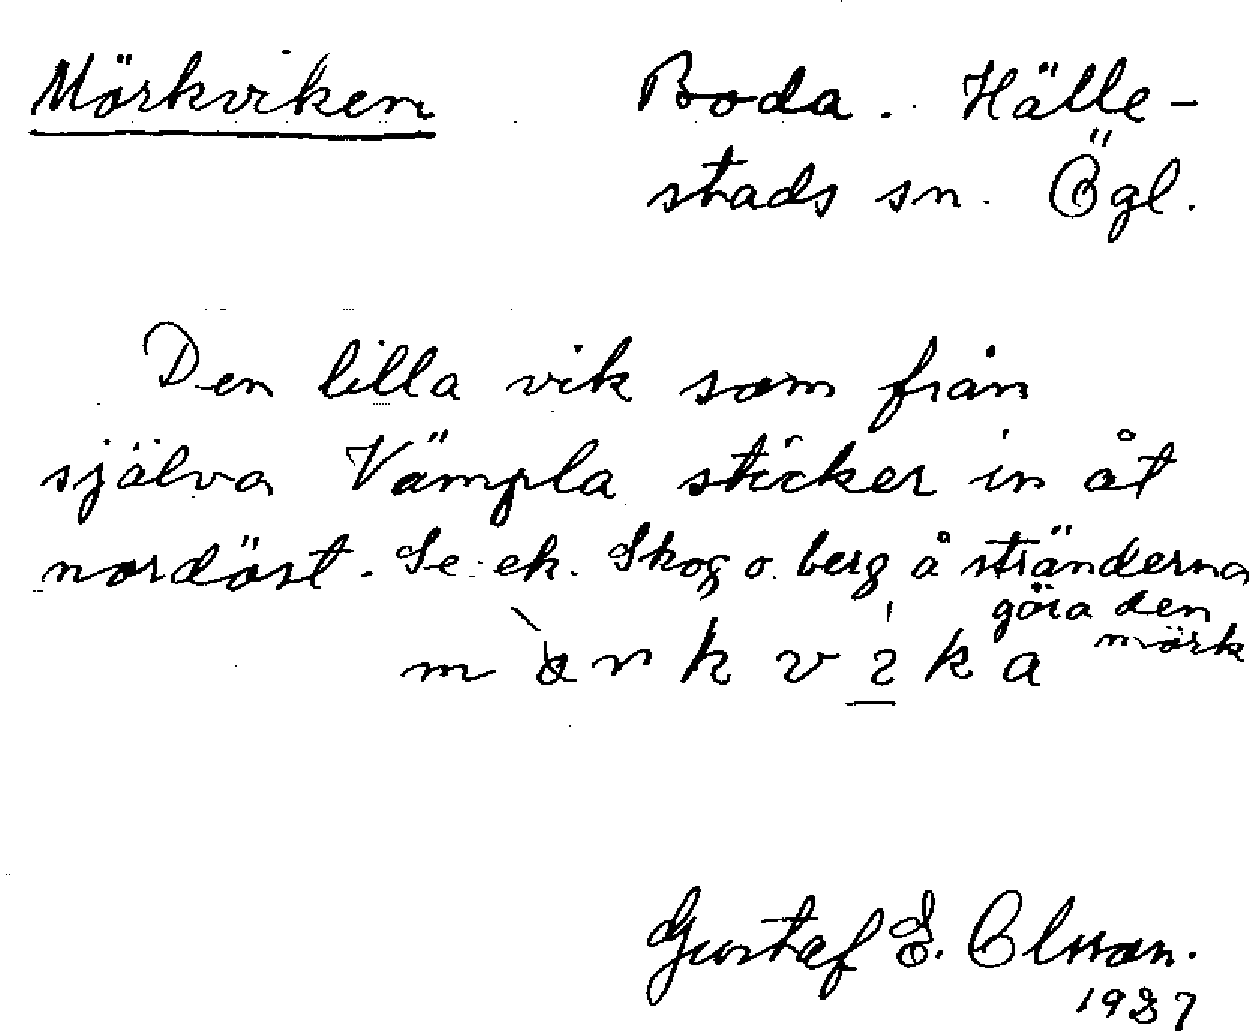 Mörkviken Boda. Hälle-
stads sn. Ögl.
Den lilla vik som från
själva Vämpla sticker in åt
nordöst. Se ek. Skog o. berg å stränderna
göra den
mörk
Gustaf E. Olsson.
1937